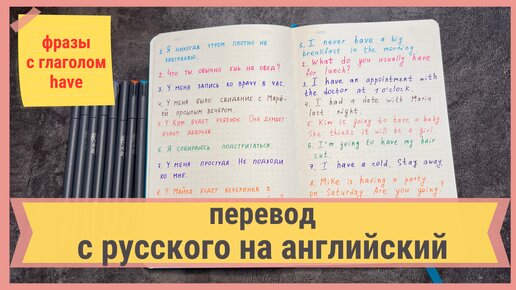 фразы
с глаголом
have
1. Я никогда утром плотно не
завтракаю.
2. Что ты обычно ешь на обед?
3. У меня запись ко врачу в час.
4. У меня было свидание с Мари-
ей прошлым вечером.
5. У Ким будет ребенок. Она думает
будет девочка.
6. Я собираюсь подстригаться.
7. У меня простуда. Не подходи
ко мне.
8. У Майка будет вечеринка в
1. I never have a big
breakfast in the morning
2. What do you usually have
for lunch?
3. I have an appointment with
the doctor at 1 o'clock.
4. I had a date with Maria
last night.
5. Kim is going to have a baby.
She thinks it will be a girl.
6. I'm going to have my hair
cut.
7. I have a cold. Stay away.
8. Mike is having a party
on Saturday. Are you going
перевод
с русского на английский